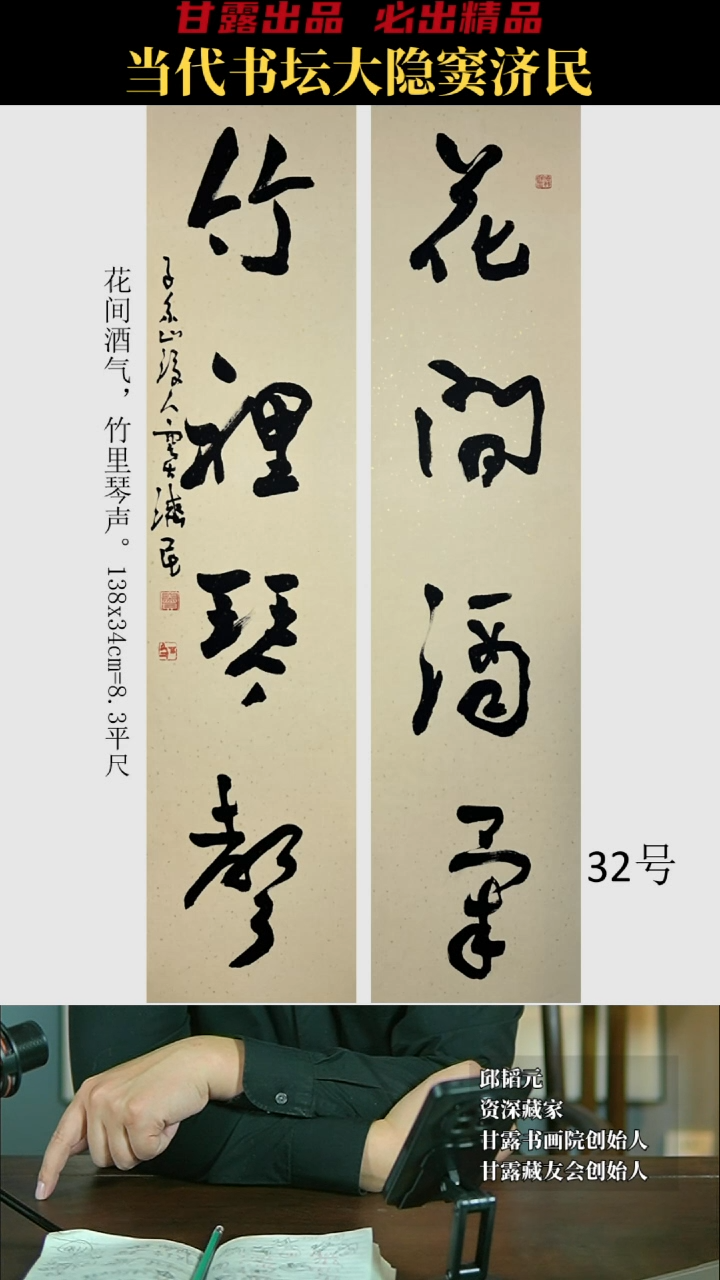 甘露出品 必出精品
当代书坛大隐窦济民
花間酒氣
竹裡琴聲
山 人窦濟民
花间酒气，竹里琴声。138x34cm=8.3平尺
32号
邱韬元
资深藏家
甘露书画院创始人
甘露藏友会创始人